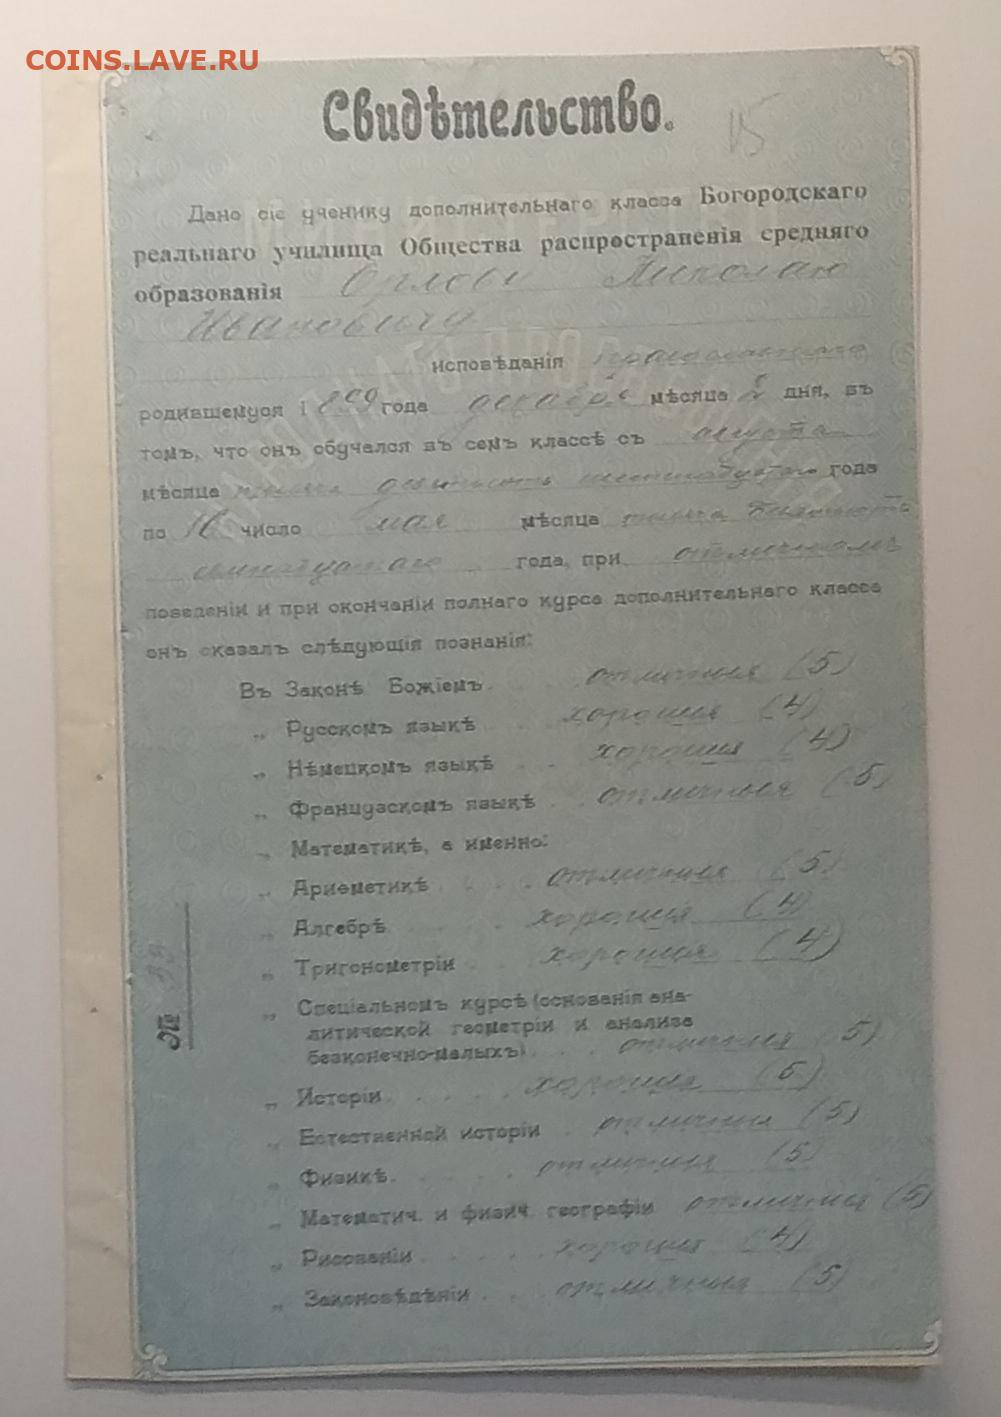 COINS.LAVE.RU
Свидѣтельство.
15
МИНИСТЕРСТВО
НАРОДНАГО ПРОСВѢЩЕНІЯ
Дано сіе ученику дополнительнаго класса Богородскаго
реальнаго училища Общества распространенія средняго
образованія Орлову Николаю
Ивановичу
исповѣданія православнаго
родившемуся 1899 года декабря мѣсяца 2 дня, въ
томъ, что онъ обучался въ семъ классѣ съ августа
мѣсяца тысяча девятьсотъ шестнадцатаго года
по 16 число мая мѣсяца тысяча девятьсотъ
семнадцатаго года, при отличномъ
поведеніи и при окончаніи полнаго курса дополнительнаго класса
онъ оказалъ слѣдующія познанія:
Въ Законѣ Божіемъ . . . отличныя (5)
„ Русскомъ языкѣ . . хорошия (4)
„ Нѣмецкомъ языкѣ . . хорошия (4)
„ Французскомъ языкѣ . . отличныя (5)
„ Математикѣ, а именно:
„ Ариѳметикѣ . . . . отличныя (5)
„ Алгебрѣ . . . . . хорошия (4)
„ Тригонометріи . . . хорошия (4)
„ Спеціальномъ курсѣ (основанія ана-
литической геометріи и анализа
безконечно-малыхъ) . . . отличныя (5)
„ Исторіи . . . . . хорошия (5)
„ Естественной исторіи . отличныя (5)
„ Физикѣ. . . . . отличныя (5)
„ Математич. и физич. географіи отличныя (5)
„ Рисованіи . . . . хорошия (4)
„ Законовѣдѣніи . . . отличныя (5)
№ 33